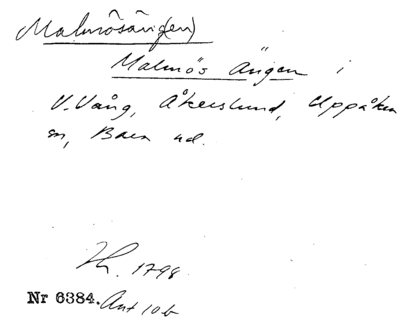 Malmösäng(en)
Malmös Ängen i
V. Vång, Åkerslund, Uppåkra
sn, Bara hd.
Th. 1798
Nr 6384. Ant 10 b